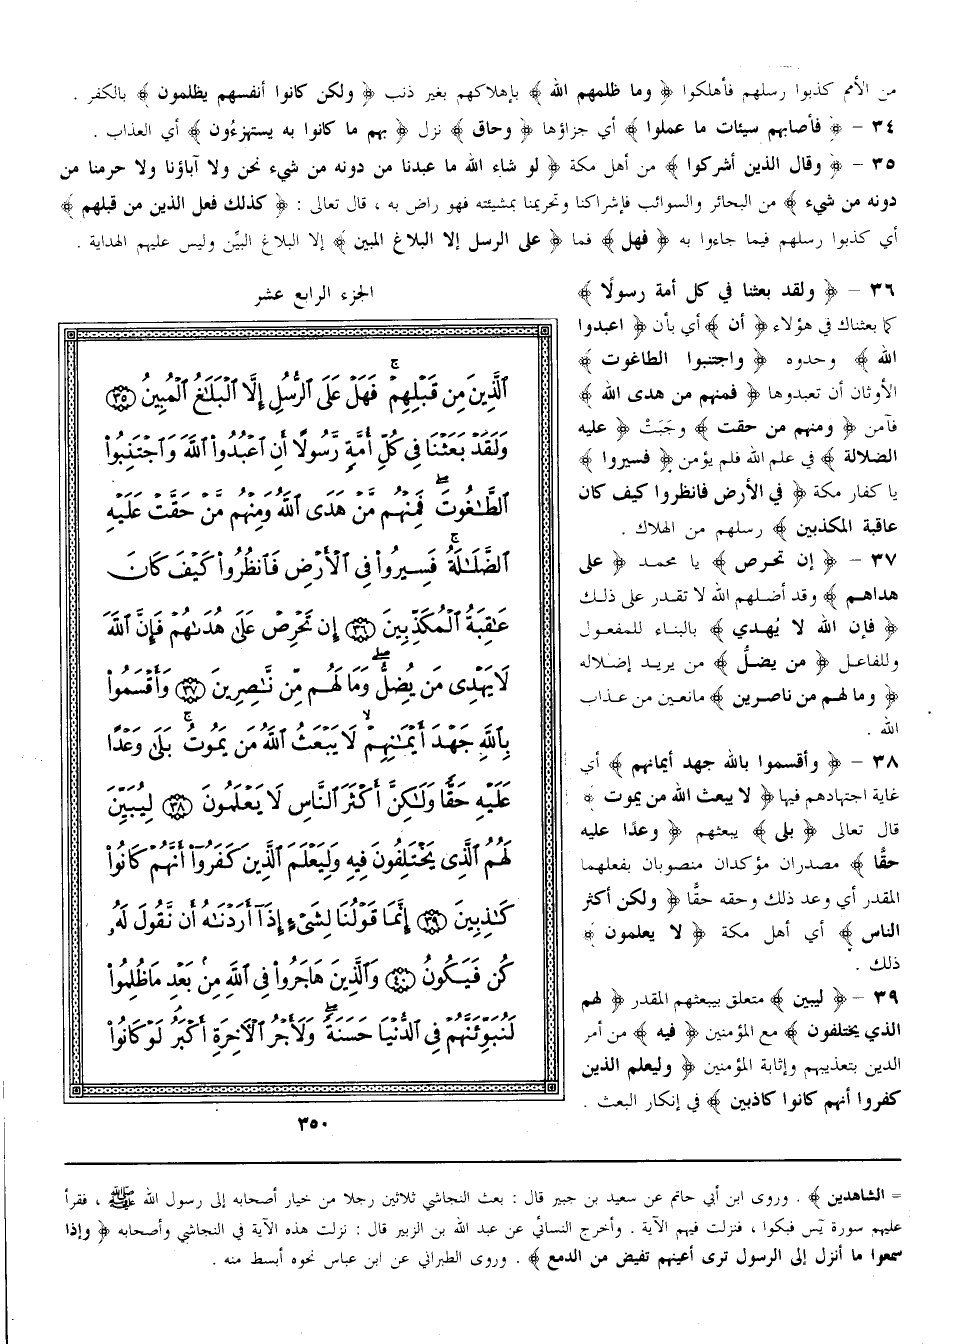 من الأمم كذبوا رسلهم فأهلكوا ﴿ وما ظلمهم الله ﴾ بإهلاكهم بغير ذنب ﴿ ولكن كانوا أنفسهم يظلمون ﴾ بالكفر .
٣٤ - ﴿ فأصابهم سيئات ما عملوا ﴾ أي جزاؤها ﴿ وحاق ﴾ نزل ﴿ بهم ما كانوا به يستهزءون ﴾ أي العذاب .
٣٥ - ﴿ وقال الذين أشركوا ﴾ من أهل مكة ﴿ لو شاء الله ما عبدنا من دونه من شيء نحن ولا آباؤنا ولا حرمنا من
دونه من شيء ﴾ من البحائر والسوائب فإشراكنا وتحريمنا بمشيئته فهو راض به ، قال تعالى : ﴿ كذلك فعل الذين من قبلهم ﴾
أي كذبوا رسلهم فيما جاءوا به ﴿ فهل ﴾ فما ﴿ على الرسل إلا البلاغ المبين ﴾ إلا البلاغ البيِّن وليس عليهم الهداية .
٣٦ - ﴿ ولقد بعثنا في كل أمة رسولًا ﴾
كما بعثناك في هؤلاء ﴿ أن ﴾ أي بأن ﴿ اعبدوا
الله ﴾ وحدوه ﴿ واجتنبوا الطاغوت ﴾
الأوثان أن تعبدوها ﴿ فمنهم من هدى الله ﴾
فآمن ﴿ ومنهم من حقت ﴾ وجَبَتْ ﴿ عليه
الضلالة ﴾ في علم الله فلم يؤمن ﴿ فسيروا ﴾
يا كفار مكة ﴿ في الأرض فانظروا كيف كان
عاقبة المكذبين ﴾ رسلهم من الهلاك .
٣٧ - ﴿ إن تحرص ﴾ يا محمد ﴿ على
هداهم ﴾ وقد أضلهم الله لا تقدر على ذلك
﴿ فإن الله لا يُهدي ﴾ بالبناء للمفعول
وللفاعل ﴿ من يضلُّ ﴾ من يريد إضلاله
﴿ وما لهم من ناصرين ﴾ مانعين من عذاب
الله .
٣٨ - ﴿ وأقسموا بالله جهد أيمانهم ﴾ أي
غاية اجتهادهم فيها ﴿ لا يبعث الله من يموت ﴾
قال تعالى ﴿ بلى ﴾ يبعثهم ﴿ وعدًا عليه
حقًّا ﴾ مصدران مؤكدان منصوبان بفعلهما
المقدر أي وعد ذلك وحقه حقًّا ﴿ ولكن أكثر
الناس ﴾ أي أهل مكة ﴿ لا يعلمون ﴾
ذلك .
٣٩ - ﴿ ليبين ﴾ متعلق بيبعثهم المقدر ﴿ لهم
الذي يختلفون ﴾ مع المؤمنين ﴿ فيه ﴾ من أمر
الدين بتعذيبهم وإثابة المؤمنين ﴿ وليعلم الذين
كفروا أنهم كانوا كاذبين ﴾ في إنكار البعث .
الجزء الرابع عشر
الَّذِينَ مِن قَبْلِهِمْ ۚ فَهَلْ عَلَى الرُّسُلِ إِلَّا الْبَلَاغُ الْمُبِينُ ٣٥
وَلَقَدْ بَعَثْنَا فِي كُلِّ أُمَّةٍ رَّسُولًا أَنِ اعْبُدُوا اللَّهَ وَاجْتَنِبُوا
الطَّاغُوتَ ۖ فَمِنْهُم مَّنْ هَدَى اللَّهُ وَمِنْهُم مَّنْ حَقَّتْ عَلَيْهِ
الضَّلَالَةُ ۚ فَسِيرُوا فِي الْأَرْضِ فَانظُرُوا كَيْفَ كَانَ
عَاقِبَةُ الْمُكَذِّبِينَ ٣٦ إِن تَحْرِصْ عَلَىٰ هُدَاهُمْ فَإِنَّ اللَّهَ
لَا يَهْدِي مَن يُضِلُّ ۖ وَمَا لَهُم مِّن نَّاصِرِينَ ٣٧ وَأَقْسَمُوا
بِاللَّهِ جَهْدَ أَيْمَانِهِمْ ۙ لَا يَبْعَثُ اللَّهُ مَن يَمُوتُ ۚ بَلَىٰ وَعْدًا
عَلَيْهِ حَقًّا وَلَٰكِنَّ أَكْثَرَ النَّاسِ لَا يَعْلَمُونَ ٣٨ لِيُبَيِّنَ
لَهُمُ الَّذِي يَخْتَلِفُونَ فِيهِ وَلِيَعْلَمَ الَّذِينَ كَفَرُوا أَنَّهُمْ كَانُوا
كَاذِبِينَ ٣٩ إِنَّمَا قَوْلُنَا لِشَيْءٍ إِذَا أَرَدْنَاهُ أَن نَّقُولَ لَهُ
كُن فَيَكُونُ ٤٠ وَالَّذِينَ هَاجَرُوا فِي اللَّهِ مِن بَعْدِ مَا ظُلِمُوا
لَنُبَوِّئَنَّهُمْ فِي الدُّنْيَا حَسَنَةً ۖ وَلَأَجْرُ الْآخِرَةِ أَكْبَرُ لَوْ كَانُوا
٣٥٠
= الشاهدين ﴾ . وروى ابن أبي حاتم عن سعيد بن جبير قال : بعث النجاشي ثلاثين رجلا من خيار أصحابه إلى رسول الله ﷺ ، فقرأ
عليهم سورة يٓس فبكوا ، فنزلت فيهم الآية . وأخرج النسائي عن عبد الله بن الزبير قال : نزلت هذه الآية في النجاشي وأصحابه ﴿ وإذا
سمعوا ما أنزل إلى الرسول ترى أعينهم تفيض من الدمع ﴾ . وروى الطبراني عن ابن عباس نحوه أبسط منه .